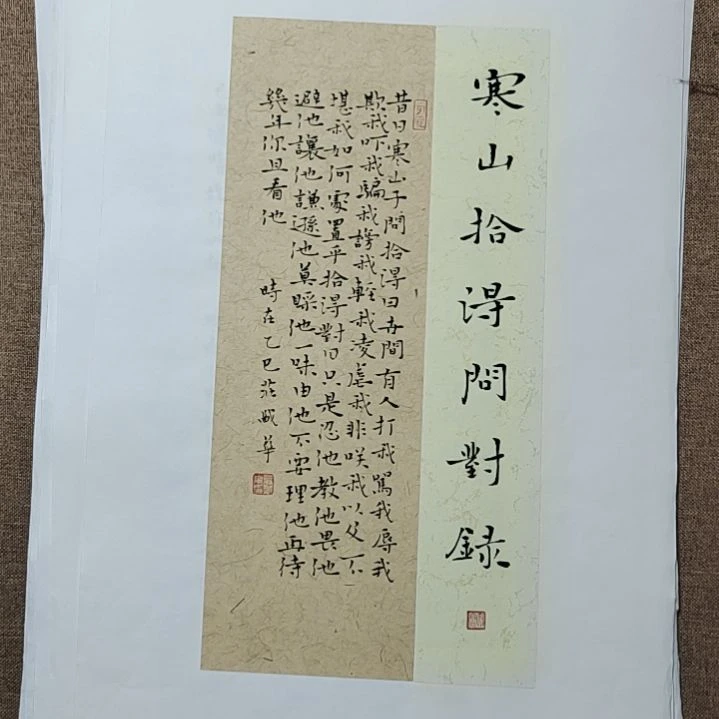 寒山拾得問對録
昔日寒山子問拾得曰世間有人打我罵我辱我
欺我吓我騙我謗我輕我凌虐我非咲我以及不
堪我如何處置乎拾得對曰只是忍他教他畏他
避他讓他謙遜他莫睬他一味由他不要理他再待
幾年你且看他
時在乙巳莊華